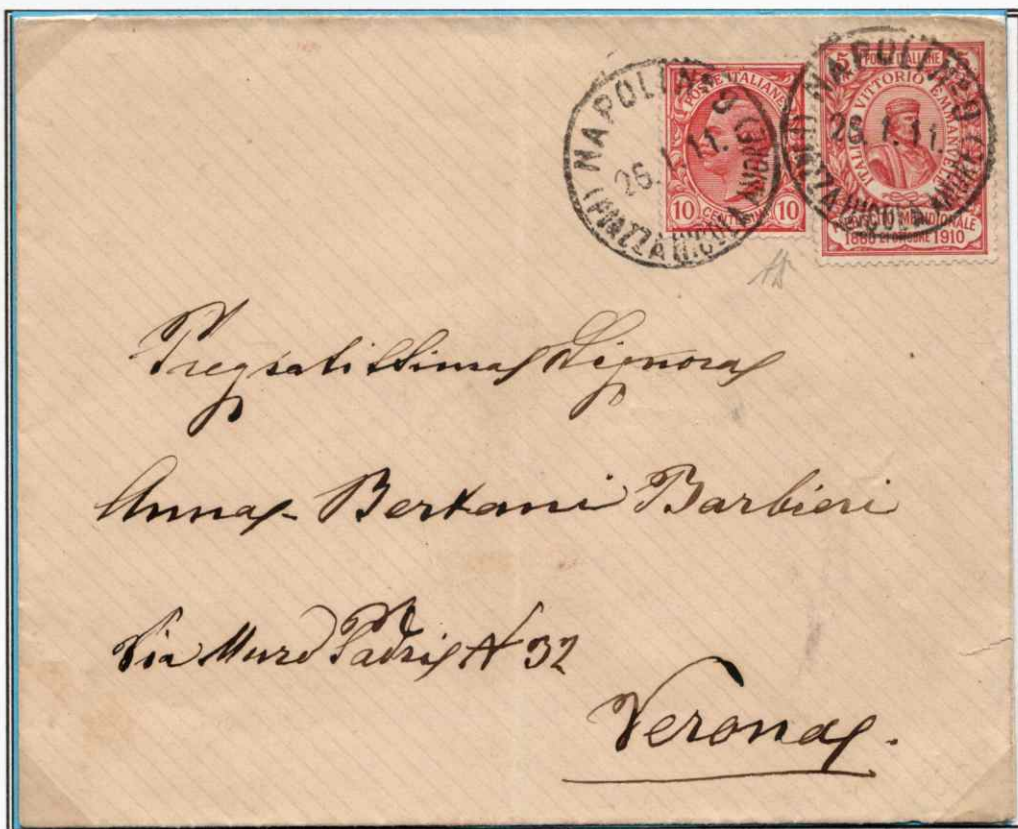 NAPOLI
26.1.11.
(PIAZZA
POSTE ITALIANE
10 CENTESIMI 10
NAPOLI
26.1.11.
POSTE ITALIANE
VITTORIO EMMANUELE
ITALIA
PLEBISCITO MERIDIONALE
1860 21 OTTOBRE 1910
Pregiatissima Signora
Anna Bertani Barbieri
Via Muro Padri N 32
Verona.